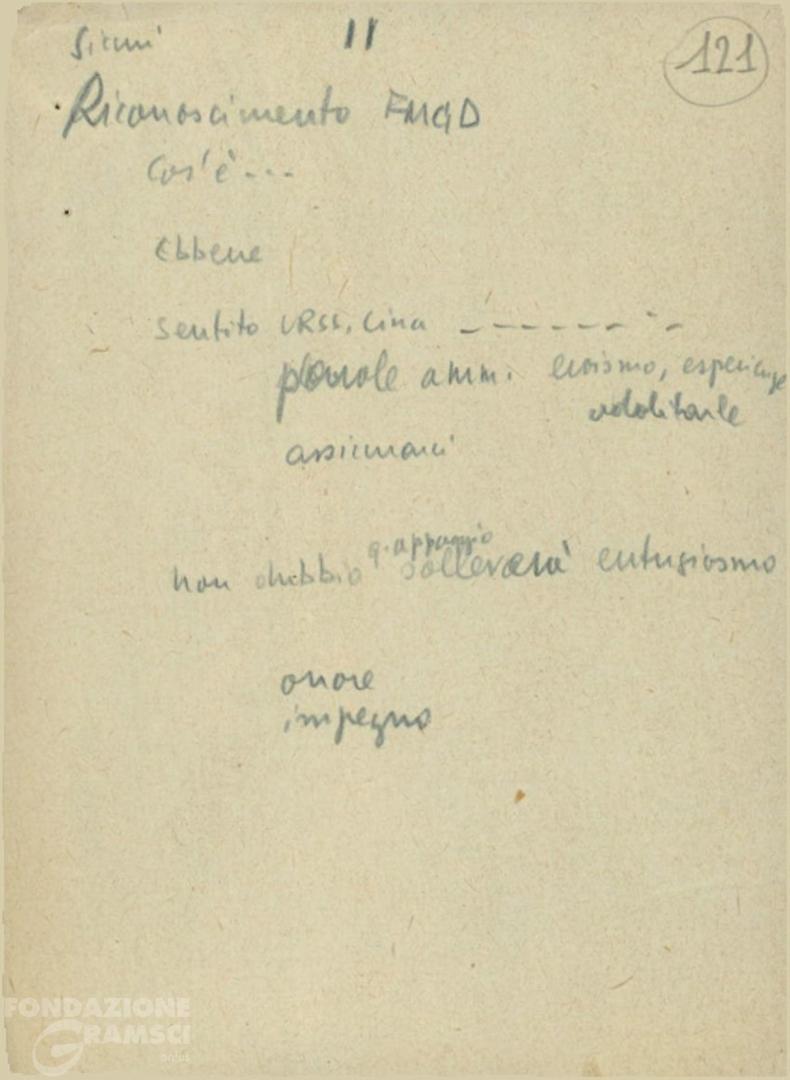 Sicuri 11 121
Riconoscimento FMGD
Cos'è ---
Ebbene
Sentito URSS, Cina -------
parole amm. eroismo, esperienze
assicurarci
q. appoggio
non dubbio solleverà entusiasmo
onore
impegno
FONDAZIONE
GRAMSCI
onlus